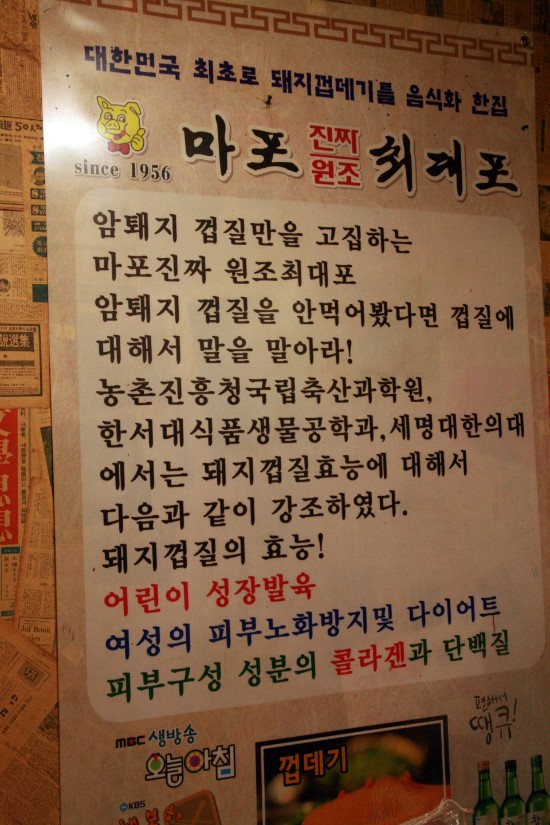 대한민국 최초로 돼지껍데기를 음식화 한집
since 1956
마포 진짜 원조 최대포
암퇘지 껍질만을 고집하는
마포진짜 원조최대포
암퇘지 껍질을 안먹어봤다면 껍질에
대해서 말을 말아라!
농촌진흥청국립축산과학원,
한서대식품생물공학과,세명대한의대
에서는 돼지껍질효능에 대해서
다음과 같이 강조하였다.
돼지껍질의 효능!
어린이 성장발육
여성의 피부노화방지및 다이어트
피부구성 성분의 콜라겐과 단백질
편해서
땡큐!
MBC 생방송
오늘아침
껍데기
KBS